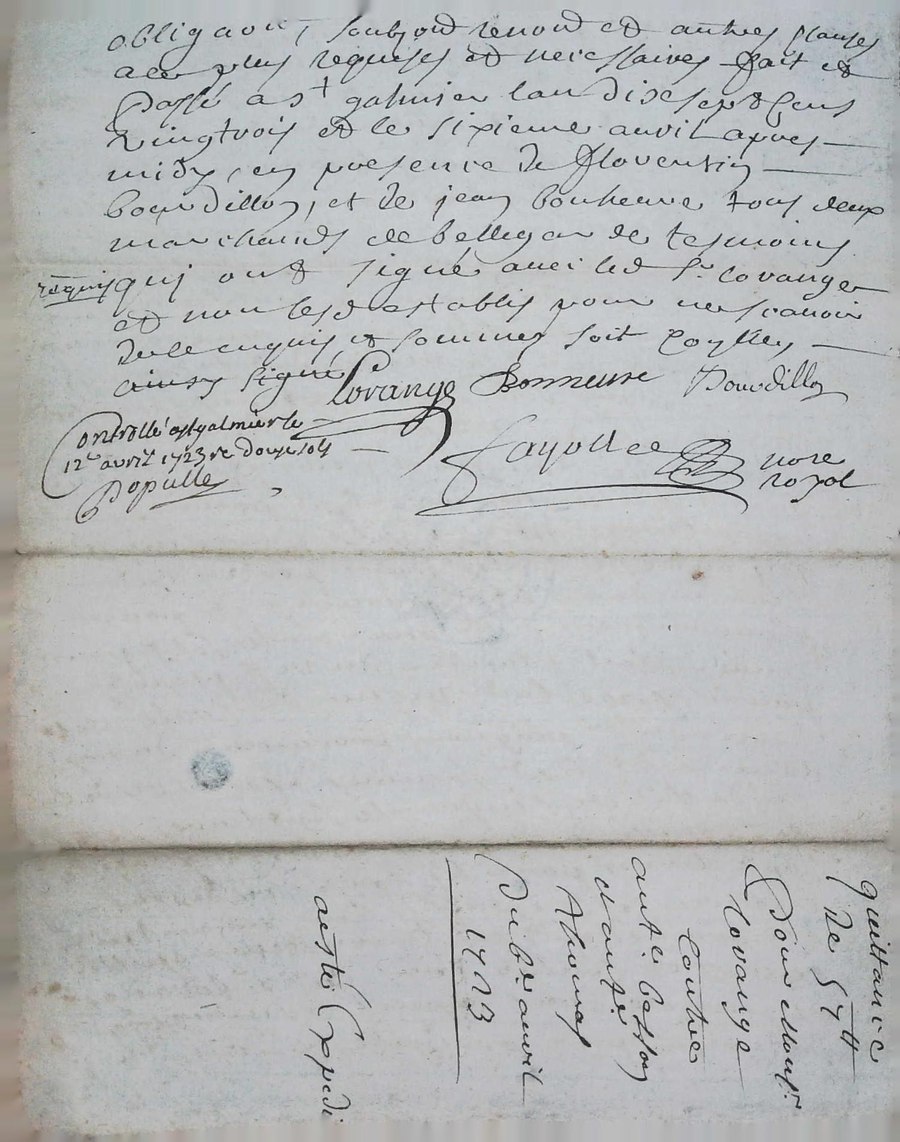 obligaon, soubzond renond et autres clauses
a ce plus requises et necessaires fait et
Passé a st galmier lan dixe sept cens
vingtrois et le sixieme auril apres
midy, en presence de florentin
bourdillon, et de jean bonneure tous deux
marchands de bellegarde tesmoins
requis qui ont signé auec led sr. lorange
et non lesd establis pour ne scauoir
de ce enquis et sommes soit
ainsy signé
Lorange Bonneure Bourdillon
Controllé a st galmier le
12e auril 1723 re douze sols
Populle
fayolle nore
royal
quittance
de 57 tt
Pour Monsr.
Lorange
Contre
ant. besson
et
thomas
Du 6e auril
1723
a esté Expedi